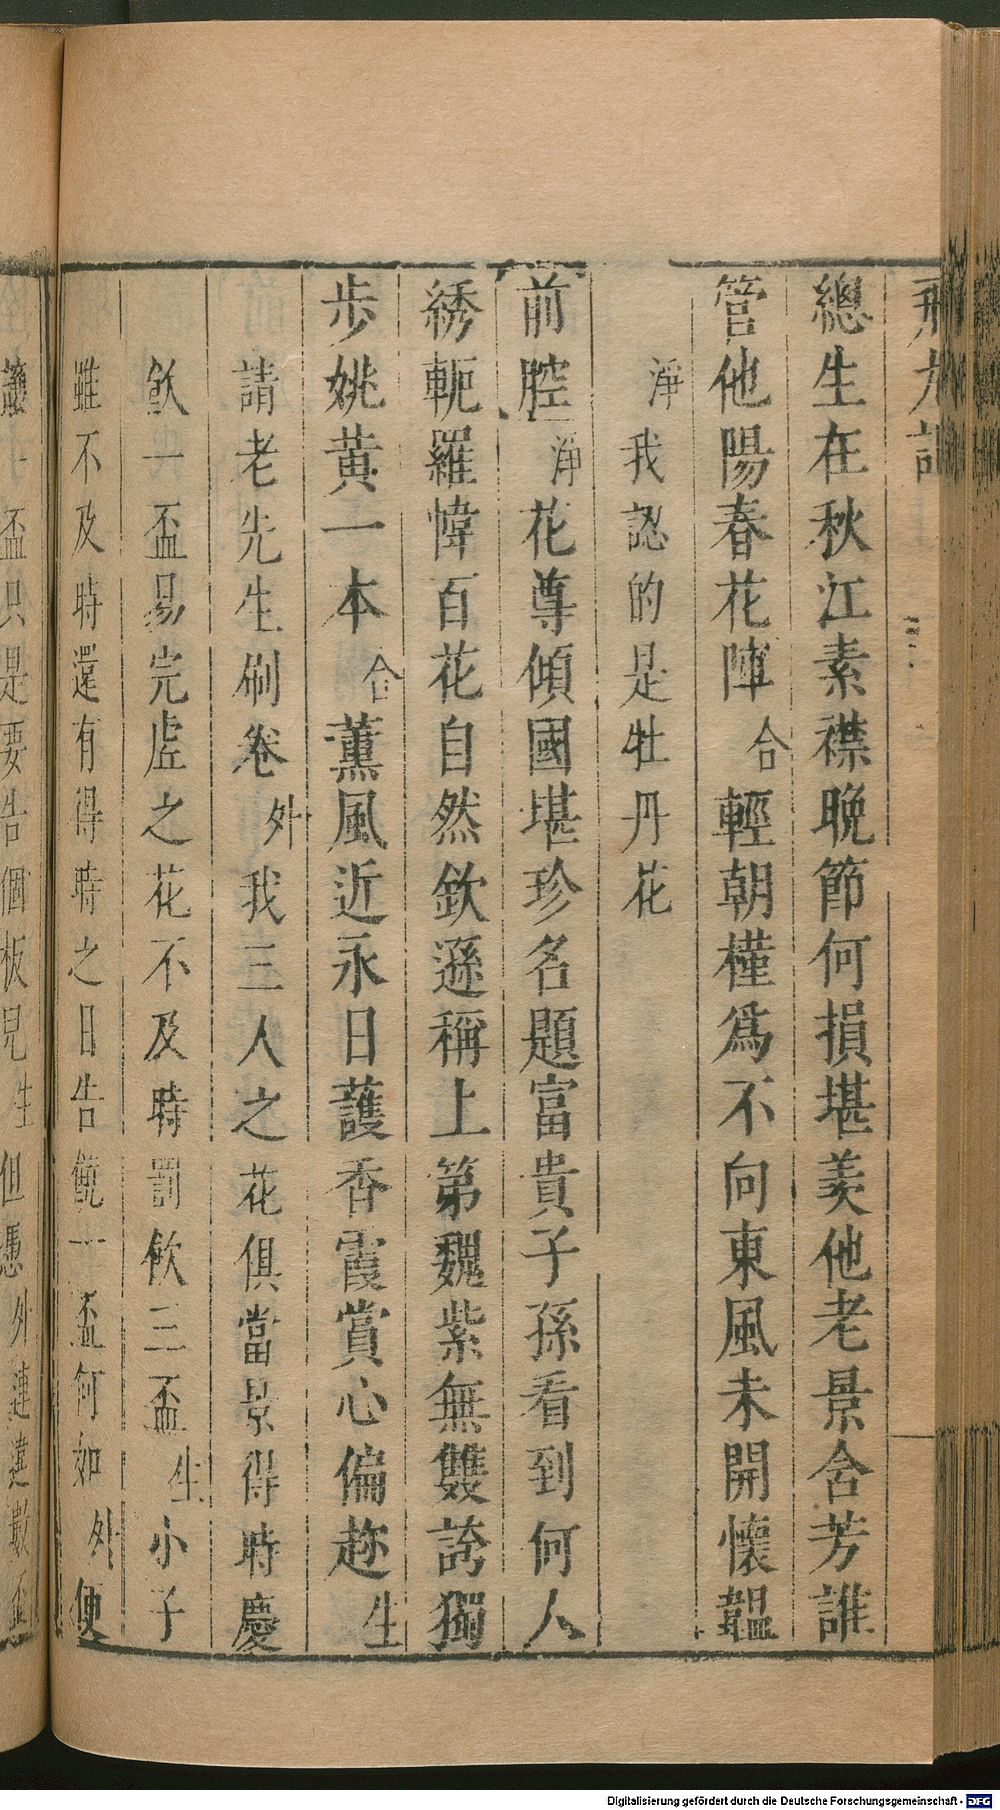 總生在秋江素襟晚節何損堪羨他老景含芳誰
管他陽春花陣合輕朝槿爲不向東風未開懷韞
淨我認的是牡丹花
前腔淨花尊傾國堪珍名題富貴子孫看到何人
綉軛羅幃百花自然欽遜稱上第魏紫無雙誇獨
步姚黄一本合薰風近永日護香霞賞心偏趂生
請老先生刷卷外我三人之花俱當景得時慶
飲一盃易完虐之花不及時罰飲三盃生小子
雖不及時還有得時之日告饒一盃何如外便
盃只是要告個板兒生但憑外連連數盃
Digitalisierung gefördert durch die Deutsche Forschungsgemeinschaft - DFG